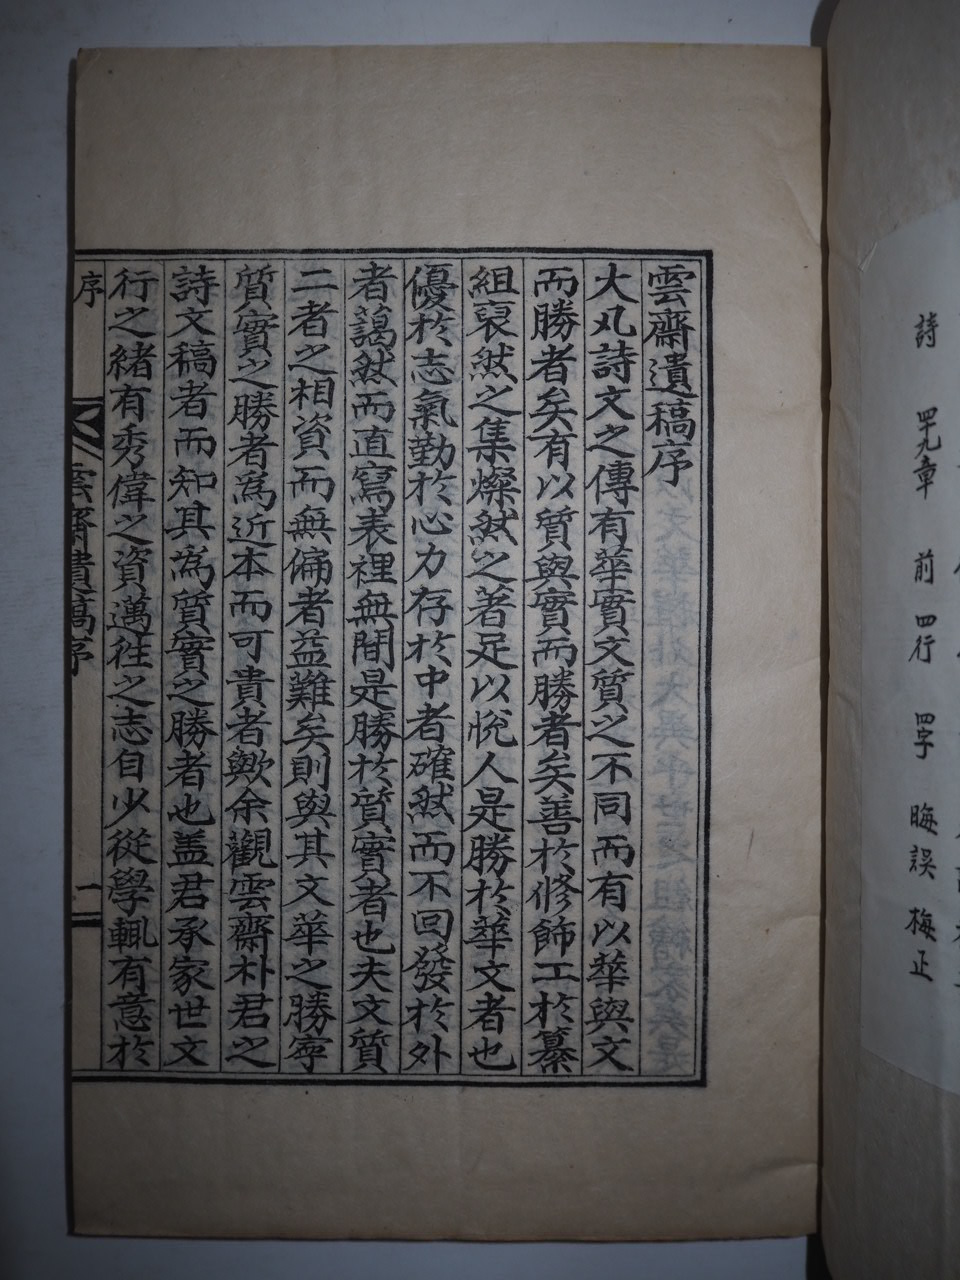 詩 四九章 前四行 四字 晦誤梅正
雲齋遺稿序
大凡詩文之傳有華實文質之不同而有以華與文
而勝者矣有以質與實而勝者矣善於修飾工於纂
組裒然之集燦然之著足以悅人是勝於華文者也
優於志氣勤於心力存於中者確然而不回發於外
者藹然而直寫表裡無間是勝於質實者也夫文質
二者之相資而無偏者益難矣則與其文華之勝寧
質實之勝者爲近本而可貴者歟余觀雲齋朴君之
詩文稿者而知其爲質實之勝者也盖君承家世文
行之緖有秀偉之資邁往之志自少從學輒有意於
序
雲齋遺稿序
一